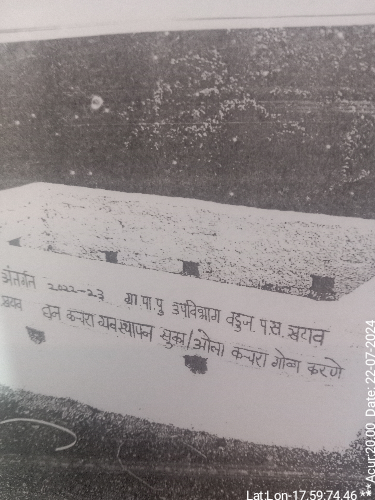 अंतर्गत 2022-23 ग्रा पा पु उपविभाग वडुज प.स खटाव
घन कचरा व्यवस्थापन सुका/ओला कचरा गोळा करणे
Lat:Lon-17.59:74.46 **
**Acur:20.00 Date: 22-07-2024